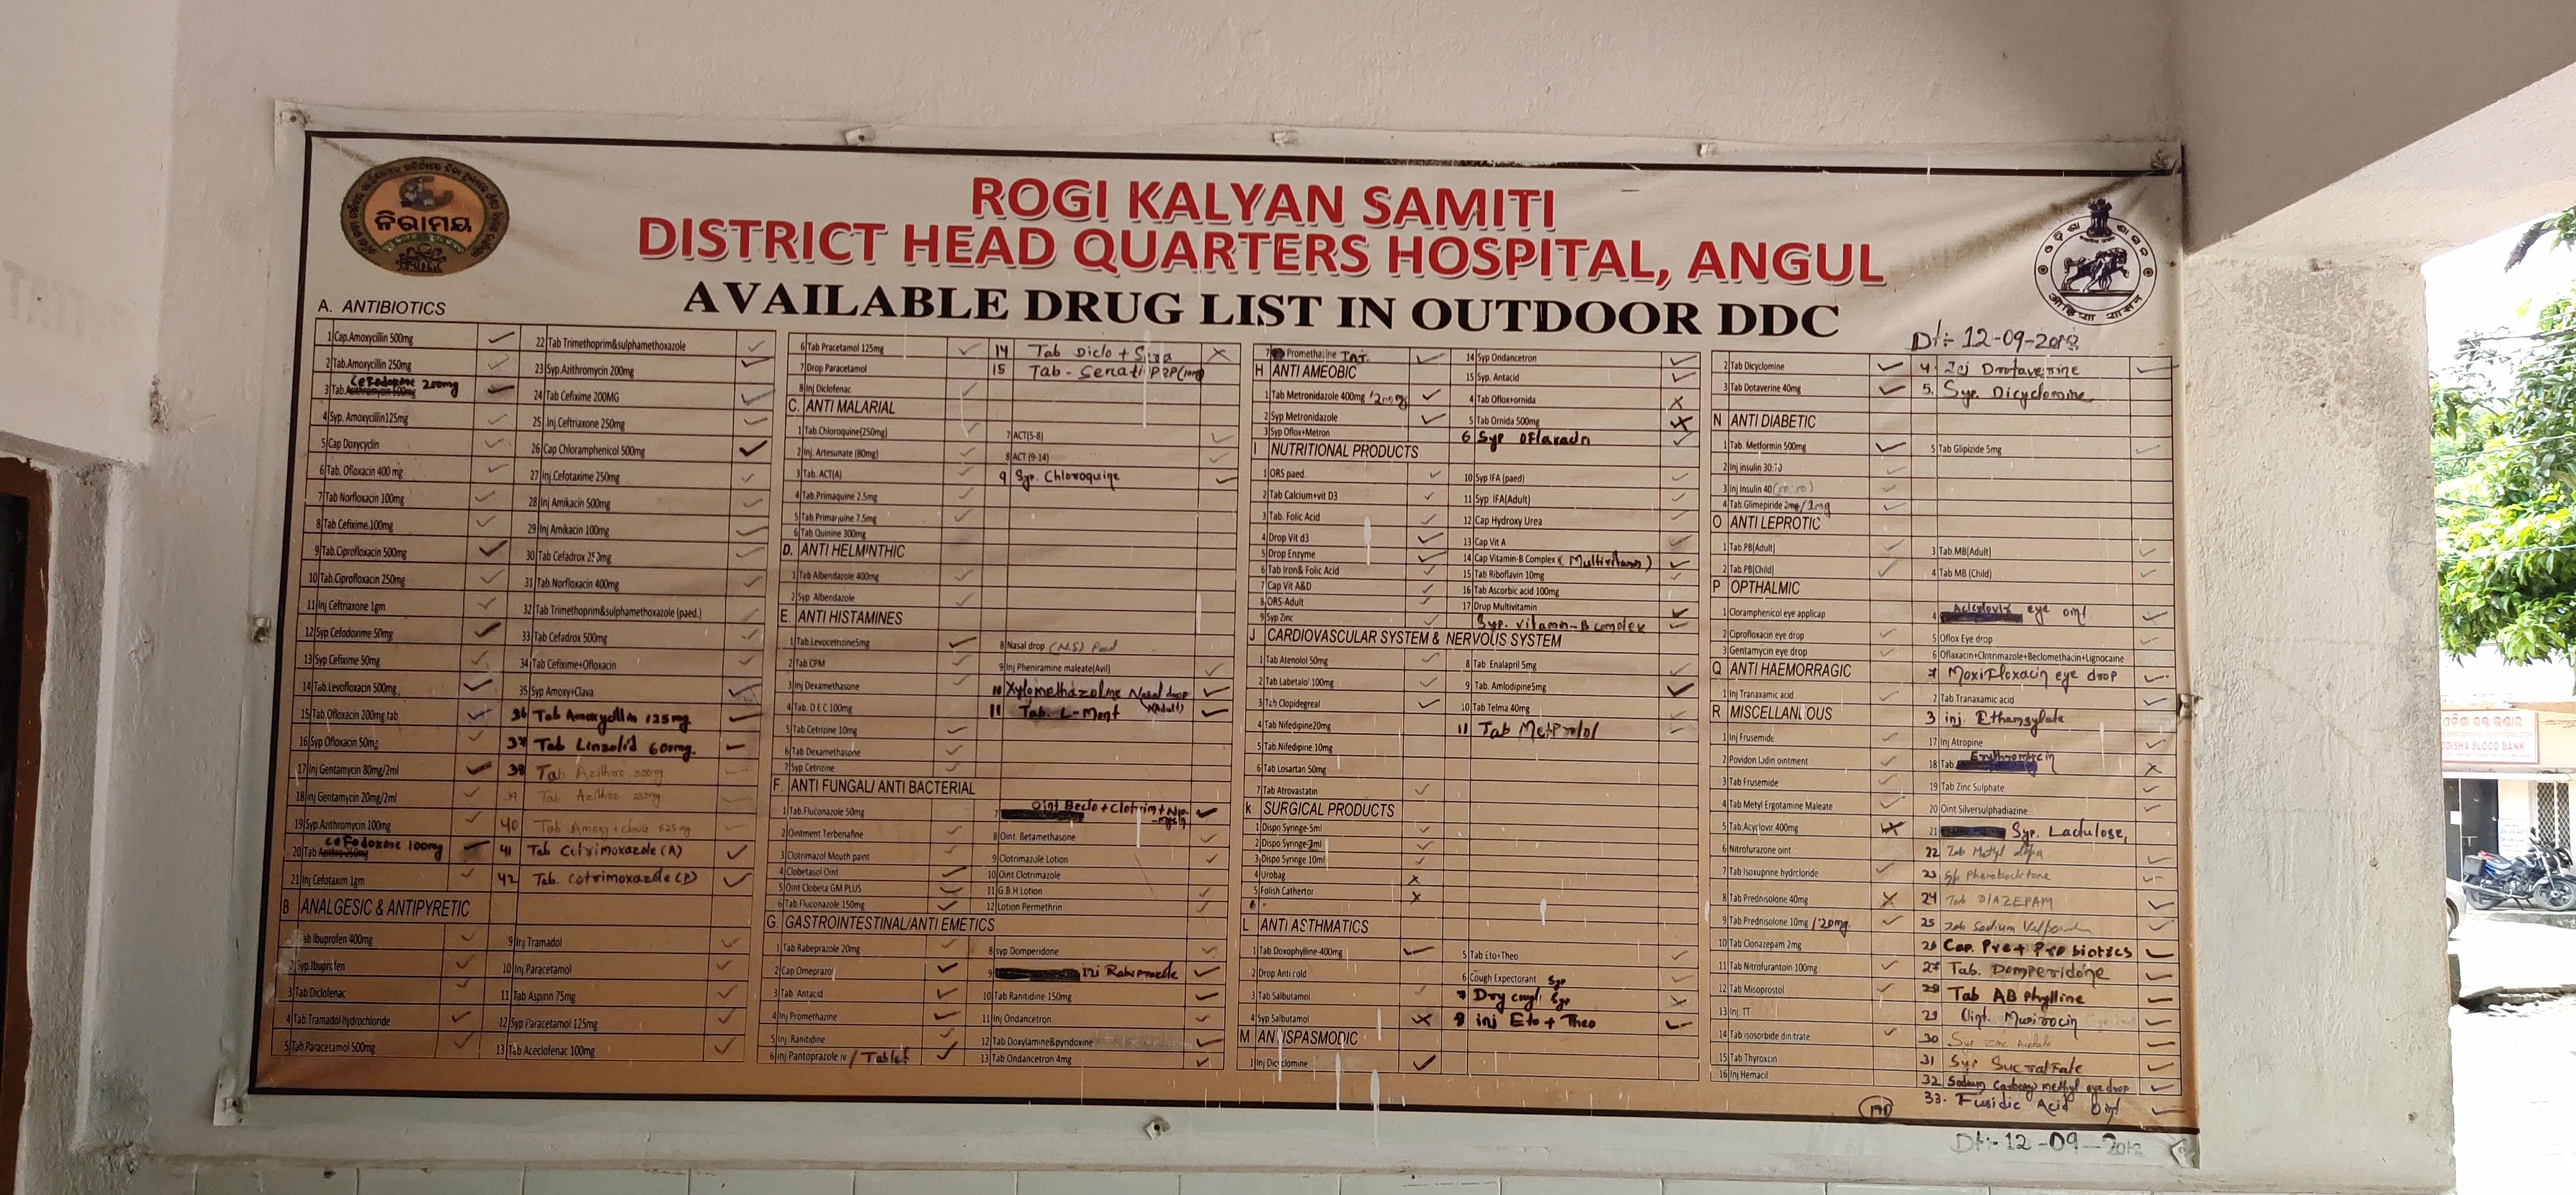 ନିରାମୟ
ROGI KALYAN SAMITI
DISTRICT HEAD QUARTERS HOSPITAL, ANGUL
AVAILABLE DRUG LIST IN OUTDOOR DDC
Dt:- 12-09-2018
A. ANTIBIOTICS
1 Cap.Amoxycillin 500mg
2 Tab.Amoxycillin 250mg
3 Tab. Cefodoxime 200mg
4 Syp. Amoxycillin125mg
5 Cap Doxycyclin
6 Tab. Ofloxacin 400 mg
7 Tab Norfloxacin 100mg
8 Tab Cefixime 100mg
9 Tab.Ciprofloxacin 500mg
10 Tab.Ciprofloxacin 250mg
11 Inj Ceftriaxone 1gm
12 Syp Cefodoxime 50mg
13 Syp Cefixime 50mg
14 Tab.Levofloxacin 500mg
15 Tab.Ofloxacin 200mg tab
16 Syp Ofloxacin 50mg
17 Inj Gentamycin 80mg/2ml
18 Inj Gentamycin 20mg/2ml
19 Syp.Anthromycin 100mg
20 Tab Cefodoxime 100mg
21 Inj Cefotaxim 1gm
22 Tab Trimethoprim&sulphamethoxazole
23 Syp.Azithromycin 200mg
24 Tab Cefixime 200MG
25 Inj.Ceftriaxone 250mg
26 Cap Chloramphenicol 500mg
27 Inj.Cefotaxime 250mg
28 Inj Amikacin 500mg
29 Inj Amikacin 100mg
30 Tab Cefadrox 250mg
31 Tab.Norfloxacin 400mg
32 Tab Trimethoprim&sulphamethoxazole (paed.)
33 Tab Cefadrox 500mg
34 Tab Cefixime+Ofloxacin
35 Syp Amoxy+Clava
36 Tab Amoxycillin 125mg
37 Tab Linzolid 600mg.
38 Tab Azithro 500mg
39 Tab Azithro 250mg
40 Tab Amoxy+clava 625mg
41 Tab Cotrimoxazole (A)
42 Tab. Cotrimoxazole (P)
B ANALGESIC & ANTIPYRETIC
Tab Ibuprofen 400mg
2 Syp.Ibuprofen
3 Tab.Diclofenac
4 Tab.Tramadol hydrochloride
5 Tab.Paracetamol 500mg
9 Inj Tramadol
10 Inj.Paracetamol
11 Tab Aspinn 75mg
12 Syp Paracetamol 125mg
13 Tab Aceclofenac 100mg
6 Tab Pracetamol 125mg
7 Drop Paracetamol
8 Inj Diclofenac
14 Tab Diclo +
15 Tab -
C. ANTI MALARIAL
1 Tab.Chloroquine(250mg)
2 Inj. Artesunate (80mg)
3 Tab. ACT(A)
4 Tab.Primaquine 2.5mg
5 Tab Primaquine 7.5mg
6 Tab Quinine 300mg
7 ACT(5-8)
8 ACT (9-14)
9 Syp. Chloroquine
D. ANTI HELMINTHIC
1 Tab Albendazole 400mg
2 Syp Albendazole
E. ANTI HISTAMINES
1 Tab.Levocetrizine5mg
2 Tab CPM
3 Inj Dexamethasone
4 Tab. D E C 100mg
5 Tab Cetrizine 10mg
6 Tab Dexamethasone
7 Syp Cetrizine
8 Nasal drop (N.S) Paed
9 Inj Pheniramine maleate(Avil)
10 Xylomethazoline Nasal drop (Adult)
11 Tab. L-Mont
F. ANTI FUNGAL/ ANTI BACTERIAL
1 Tab.Fluconazole 50mg
2 Ointment Terbenafine
3 Clotrimazol Mouth paint
4 Clobetasol Oint
5 Oint Clobeta GM PLUS
6 Tab.Fluconazole 150mg
7 Oint Beclo+Clotrim+
8 Oint. Betamethasone
9 Clotrimazole Lotion
10 Oint Clotrimazole
11 G.B.H Lotion
12 Lotion Permethrin
G. GASTROINTESTINAL/ANTI EMETICS
1 Tab Rabeprazole 20mg
2 Cap Omeprazol
3 Tab. Antacid
4 Inj Promethazine
5 Inj. Ranitidine
6 Inj Pantoprazole iv / Tablet
8 syp Domperidone
9 Inj Rabeprazole
10 Tab Ranitidine 150mg
11 Inj Ondancetron
12 Tab Doxylamine&pyridoxine
13 Tab Ondancetron 4mg
7 Promethazine INJ.
14 Syp Ondancetron
15 Syp. Antacid
H ANTI AMEOBIC
1 Tab Metronidazole 400mg /200mg
2 Syp Metronidazole
3 Syp Oflox+Metron
4 Tab Oflox+ornida
5 Tab Ornida 500mg
6 Syp
I NUTRITIONAL PRODUCTS
1 ORS paed.
2 Tab Calcium+vit D3
3 Tab. Folic Acid
4 Drop Vit d3
5 Drop Enzyme
6 Tab Iron& Folic Acid
7 Cap Vit A&D
8 ORS-Adult
9 Syp Zinc
10 Syp IFA (paed)
11 Syp IFA(Adult)
12 Cap Hydroxy Urea
13 Cap Vit A
14 Cap Vitamin-B Complex (Multivitamin)
15 Tab Riboflavin 10mg
16 Tab Ascorbic acid 100mg
17 Drop Multivitamin
Syp. Vitamin-B complex
J CARDIOVASCULAR SYSTEM & NERVOUS SYSTEM
1 Tab Atenolol 50mg
2 Tab Labetalol 100mg
3 Tab Clopidegreal
4 Tab Nifedipine20mg
5 Tab.Nifedipine 10mg
6 Tab Losartan 50mg
7 Tab Atrovastatin
8 Tab Enalapril 5mg
9 Tab. Amlodipine5mg
10 Tab Telma 40mg
11 Tab Metprolol
k SURGICAL PRODUCTS
1 Dispo Syringe-5ml
2 Dispo Syringe-2ml
3 Dispo Syringe 10ml
4 Urobag
5 Folish Cathertor
6
L ANTI ASTHMATICS
1 Tab Doxophylline-400mg
2 Drop Anti cold
3 Tab Salbutamol
4 Syp Salbutamol
5 Tab Eto+Theo
6 Cough Expectorant Syp
7 Dry cough Syp
8 inj Eto + Theo
M ANTISPASMODIC
1 Inj Dicyclomine
2 Tab Dicyclomine
3 Tab Dotaverine 40mg
4. Inj Drotaverine
5. Syp. Dicyclomine
N ANTI DIABETIC
1 Tab. Metformin 500mg
2 Inj insulin 30:70
3 Inj Insulin 40
4 Tab.Glimepiride 2mg/1mg
5 Tab Glipizide 5mg
O ANTI LEPROTIC
1 Tab.PB(Adult)
2 Tab.PB(Child)
3 Tab.MB(Adult)
4 Tab MB (Child)
P OPTHALMIC
1 Cloramphenicol eye applicap
2 Ciprofloxacin eye drop
3 Gentamycin eye drop
4 eye oint
5 Oflox Eye drop
6 Oflaxacin+Clotrimazole+Beclomethacin+Lignocaine
7 Moxifloxacin eye drop
Q ANTI HAEMORRAGIC
1 Inj Tranaxamic acid
2 Tab Tranaxamic acid
3 inj Ethamsylate
R MISCELLANIOUS
1 Inj Frusemide
2 Povidon Iodin ointment
3 Tab Frusemide
4 Tab Metyl Ergotamine Maleate
5 Tab.Acyclovir 400mg
6 Nitrofurazone oint
7 Tab Isoxuprine hydrcloride
8 Tab Prednisolone 40mg
9 Tab Prednisolone 10mg /20mg
10 Tab Clonazepam 2mg
11 Tab Nitrofurantoin 100mg
12 Tab Misoprostol
13 Inj. TT
14 Tab isosorbide dinitrate
15 Tab Thyroxin
16 Inj Hemacil
17 Inj Atropine
18 Tab Erythromycin
19 Tab Zinc Sulphate
20 Oint Silversulphadiazine
21 Syp. Lactulose,
22 Tab Methyl dopa
23 Syp
24 Tab DIAZEPAM
25 Tab Sodium
26 Cap. Pre+ Pro biotics
27 Tab. Domperidone
28 Tab AB Phylline
29 Oint. Mupirocin
30 Syp Zinc
31 Syp Sucralfate
32 Sodium Carboxy methyl eye drop
33. Fusidic Acid oint
Dt:- 12-09-2018
ODISHA BLOOD BANK